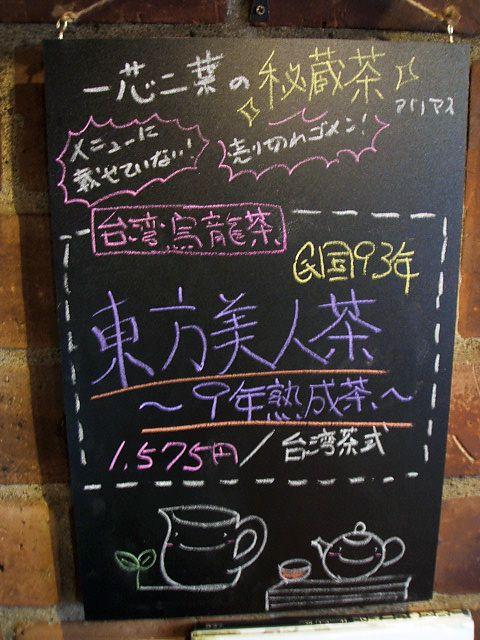 一芯二葉の秘蔵茶
アリマス
メニューに
載せていない!
売り切れゴメン!
台湾烏龍茶
民国93年
東方美人茶
～9年熟成茶～
1,575円/台湾茶式